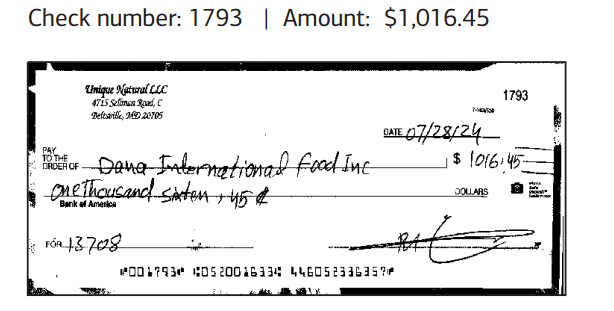 Check number: 1793 | Amount: $1,016.45
Unique Natural LLC
1793
4715 Sellman Road, C
Beltsville, MD 20705
DATE 07/28/24
PAY
TO THE
ORDER OF Dana International Food Inc $ 1016.45
One Thousand sixten, 45 ¢ DOLLARS
Bank of America
FOR 13708
⑈001793⑈ ⑆052001633⑆ 446052336357⑈